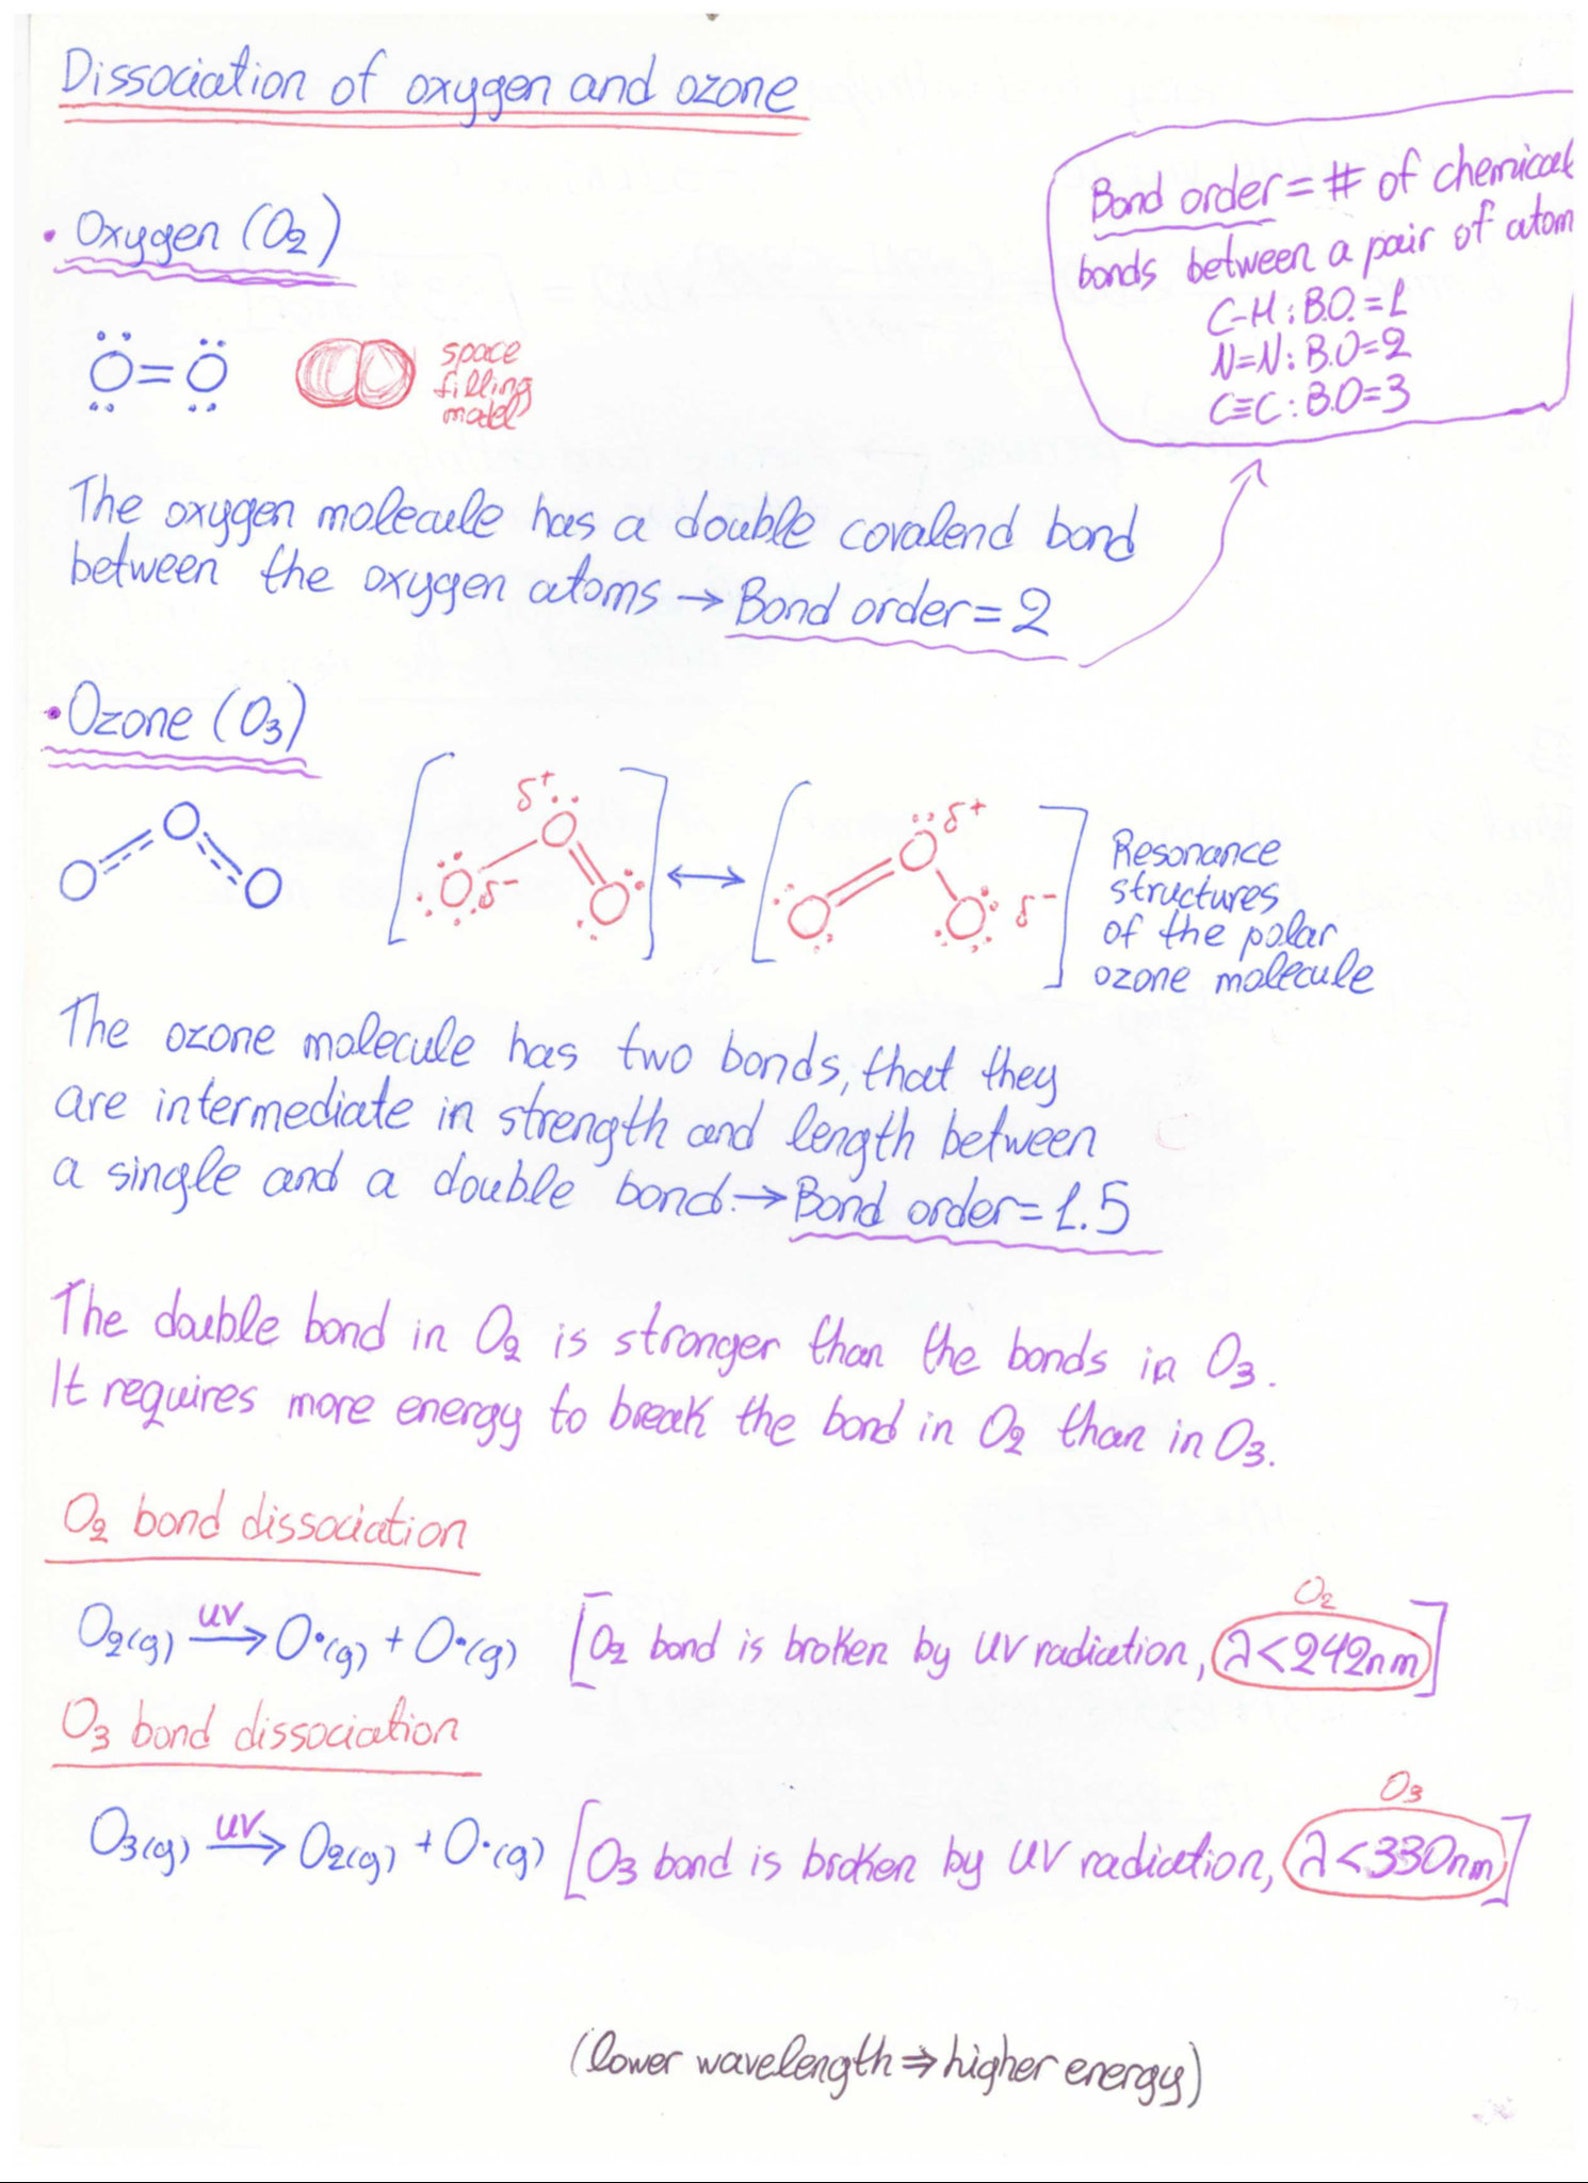 Dissociation of oxygen and ozone
Bond order = # of chemical
bonds between a pair of atom
C-H : B.O. = 1
N=N : B.O = 2
C≡C : B.O = 3
• Oxygen (O₂)
O=O
space
filling
model
The oxygen molecule has a double covalend bond
between the oxygen atoms → Bond order = 2
• Ozone (O₃)
O O O
δ+ O O δ- O
O O δ+ O δ-
Resonance
structures
of the polar
ozone molecule
The ozone molecule has two bonds, that they
are intermediate in strength and length between
a single and a double bond. → Bond order = 1.5
The double bond in O₂ is stronger than the bonds in O₃.
It requires more energy to break the bond in O₂ than in O₃.
O₂ bond dissociation
O₂(g) UV → O•(g) + O•(g) [O₂ bond is broken by UV radiation, λ<242nm] O₂
O₃ bond dissociation
O₃(g) UV → O₂(g) + O•(g) [O₃ bond is broken by UV radiation, λ<330nm] O₃
(lower wavelength ⇒ higher energy)